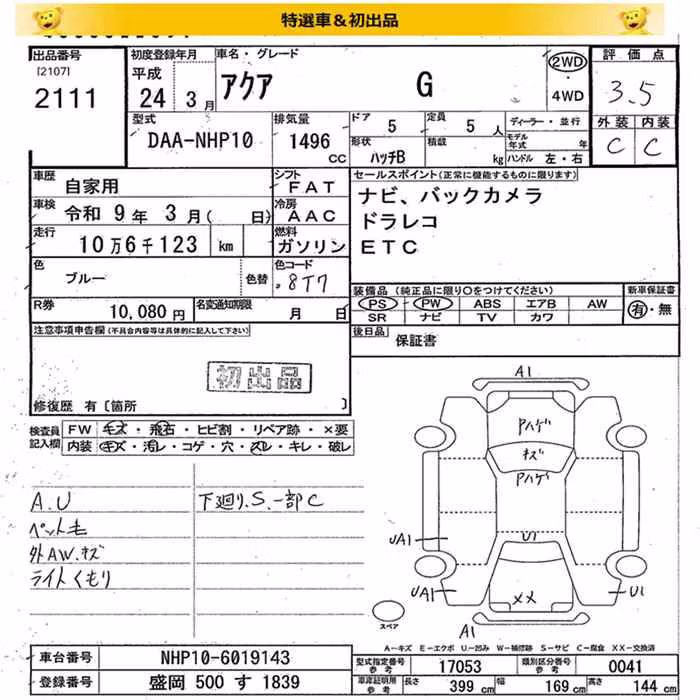 特選車&初出品
出品番号
[2107]
2111
初度登録年月
平成
24 3月
車名・グレード
アクア G
2WD
・
4WD
評価点
3.5
外装 内装
C C
型式
DAA-NHP10
排気量
1496
CC
ドア 5
定員 5 人
形状 ハッチB
積載 kg
ディーラー・並行
モデル年式 年
ハンドル 左・右
車歴 自家用
シフト FAT
車検 令和 9年 3月( 日)
冷房 AAC
走行 10万6千123 km
燃料 ガソリン
色 ブルー 色替
色コード 8T7
R券 10,080円
名変通知期限 月 日
セールスポイント(正常に機能するものに限ります)
ナビ、バックカメラ
ドラレコ
ETC
装備品 (純正品に限り○をつけてください)
PS PW ABS エアB AW
SR ナビ TV カワ
新車保証書
有・無
後日品
保証書
注意事項申告欄(不具合内容等は具体的に記入して下さい)
初出品
修復歴 有〔箇所 〕
検査員記入欄
FW キズ・飛石・ヒビ割・リペア跡・×要
内装 キズ・汚レ・コゲ・穴・スレ・キレ・破レ
A.U 下廻り.S.一部C
ペット毛
外AW.キズ
ライトくもり
A1
Pハゲ
キズ
Pハゲ
U1
UA1
UA1
U1
××
A1
スペア
A—キズ E—エクボ U—凹み W—補修跡 S—サビ C—腐食 XX—交換済
車台番号 NHP10-6019143
登録番号 盛岡 500 す 1839
型式指定番号 参考 17053
類別区分番号 参考 0041
車庫証明用 参考 長さ 399 cm 幅 169 cm 高さ 144 cm